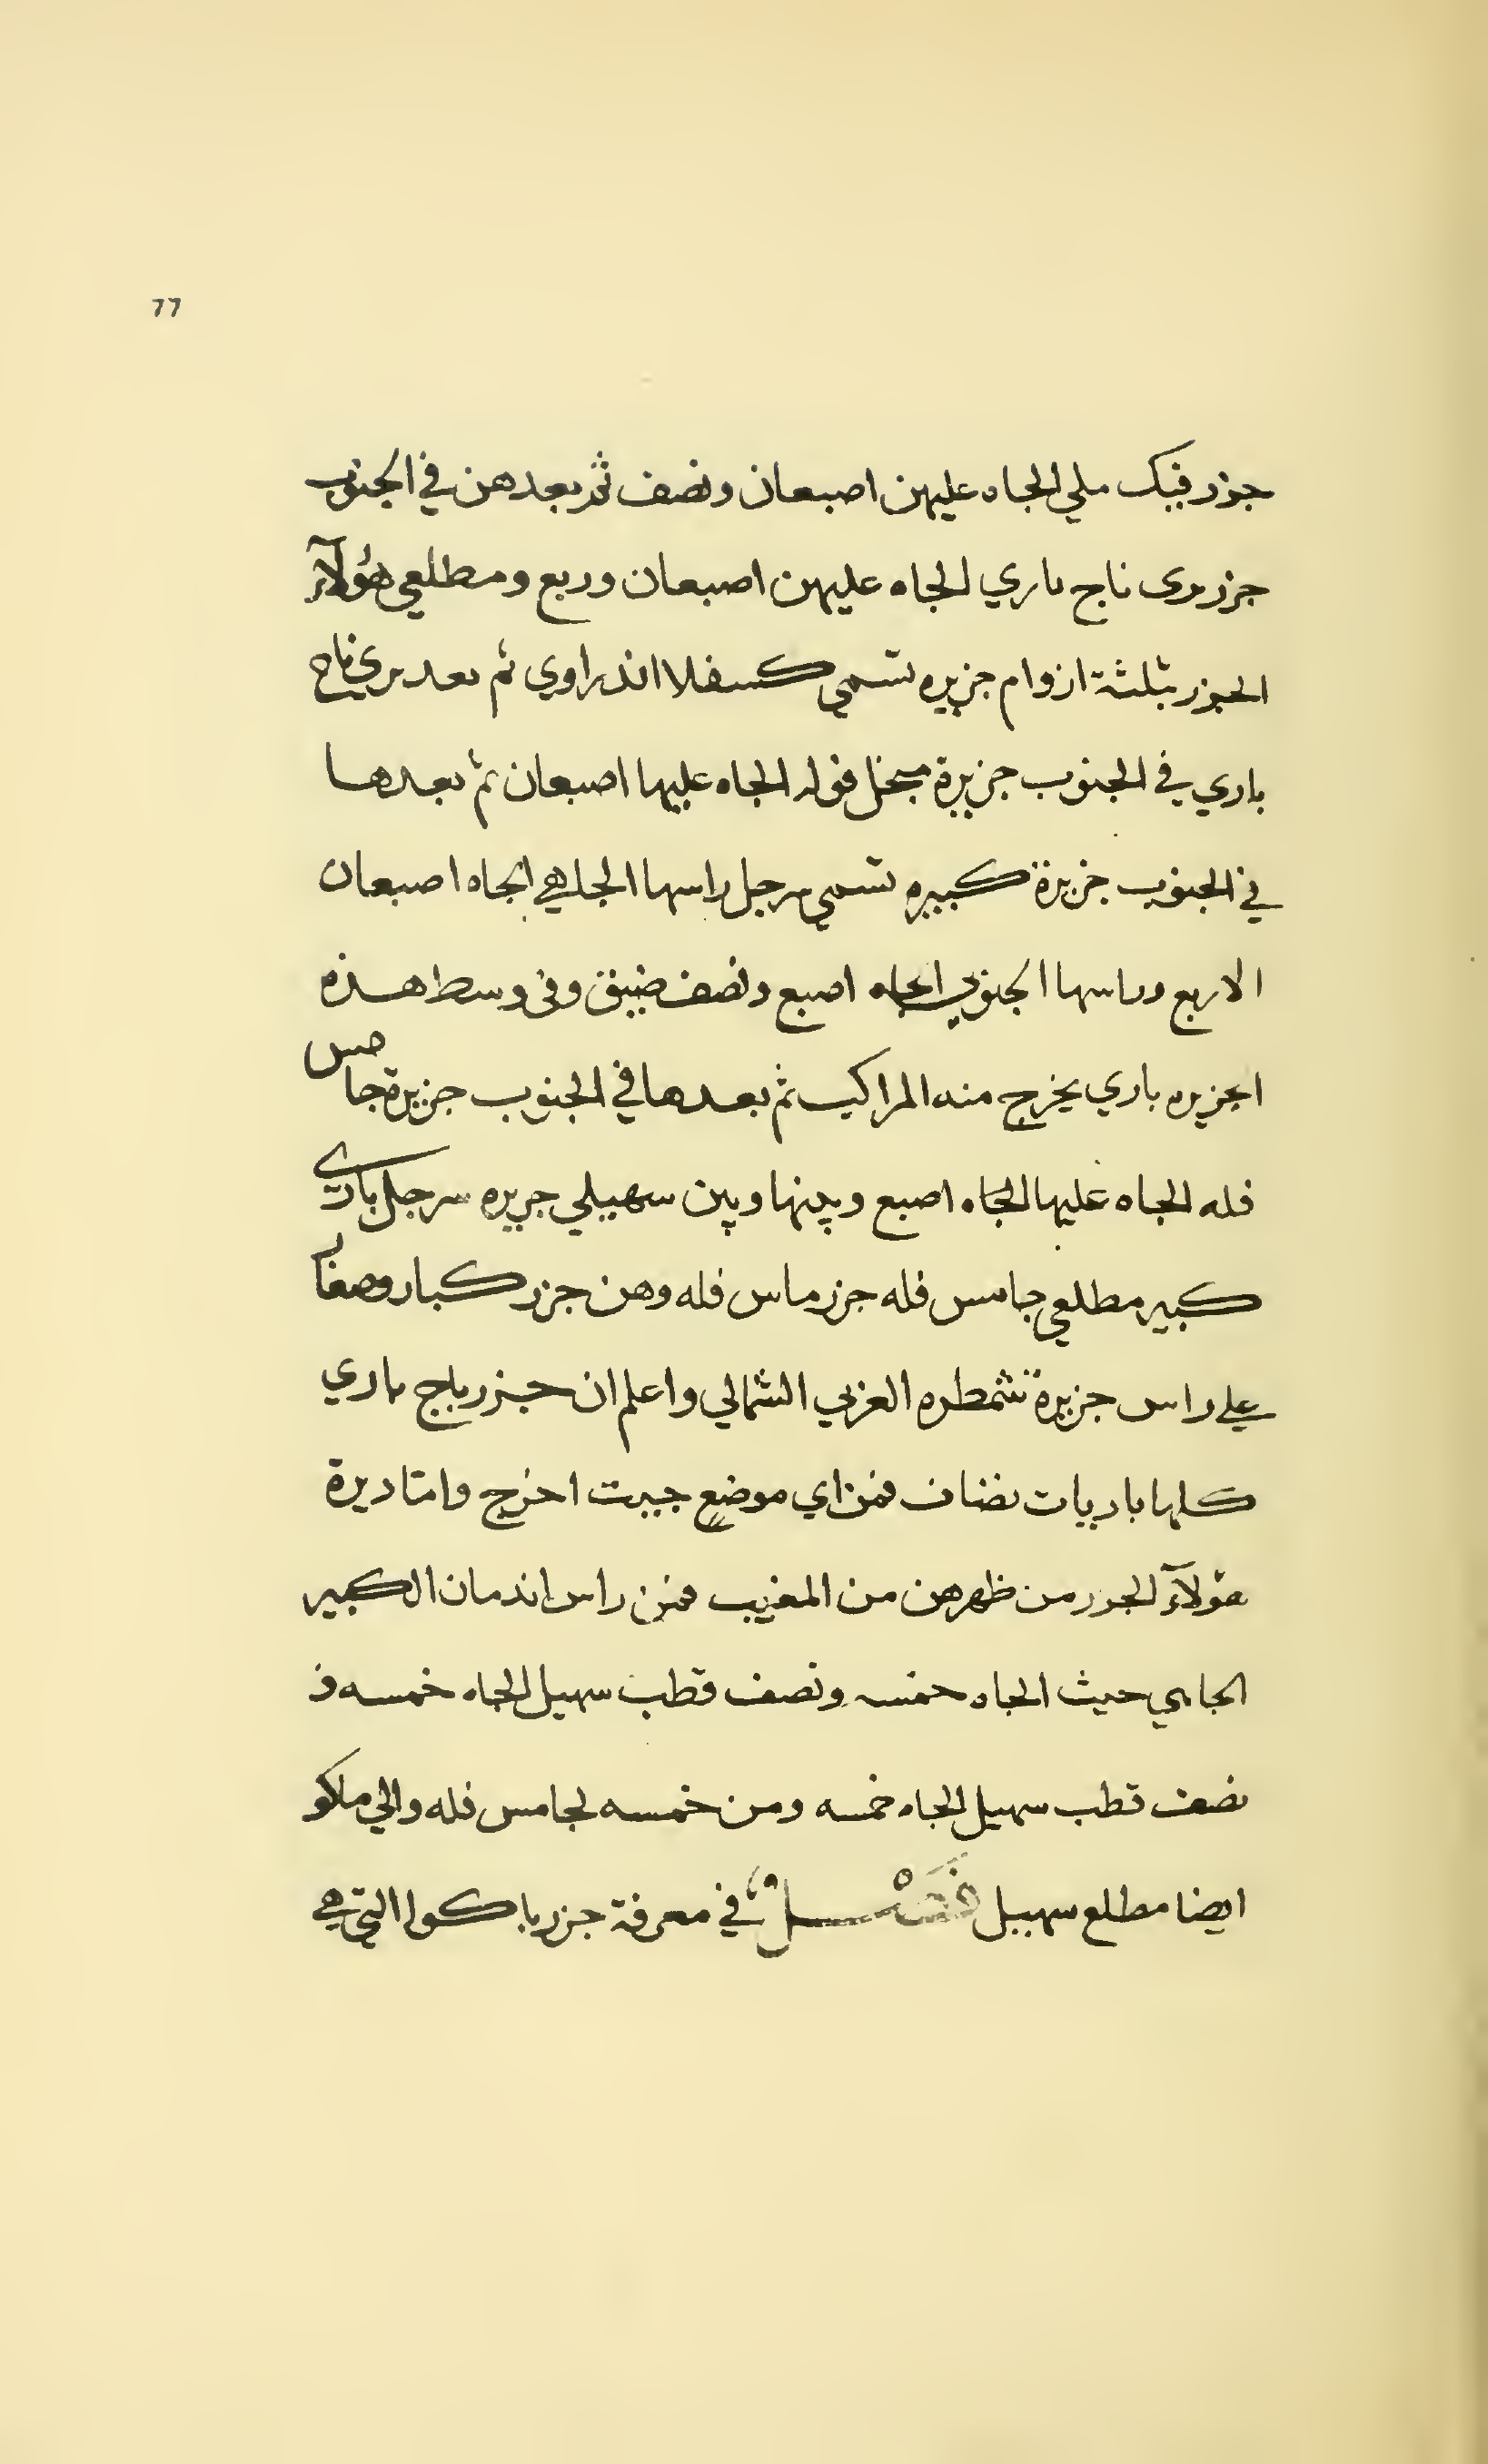 77
جزر فنك ملي الجاه عليهن اصبعان ونصف ثم بعدهن في الجنوب
جزر مرى ناج باري الجاه عليهن اصبعان وربع ومطلعي هؤلآء
الجزر بثلثة ازوام جزيره تسمي كسفلا اندراوي ثم بعد مري ناج
باري في الجنوب جزيرة فوله الجاه عليها اصبعان ثم بعدها
في الجنوب جزيرة كبيره تسمي سرجل راسها الجاهي الجاه اصبعان
الا ربع وراسها الجنوبي الجاه اصبع ونصف ضيق وفي وسط هذه
الجزيره باري يخرج منه المراكب ثم بعدها في الجنوب جزيرة جامس
فله الجاه عليها الجاه اصبع وبينها وبين سهيلي جزيره سرجل باري
كبير مطلعي جامس فله جزر ماس فله وهن جزر كبار وصغار
علي راس جزيرة شمطره الغربي الشمالي واعلم ان جزر ناج باري
كلها باريات نضاف فمن اي موضع جيت اخرج وامّا ديرة
هؤلآء الجزر من ظهرهن من المغيب فمن راس اندمان الكبير
الجاهي حيث الجاه خمسه ونصف قطب سهيل الجاه خمسه و
نصف قطب سهيل الجاه خمسه ومن خمسه لجامس فله والي ملاكو
ايضا مطلع سهيل فَصْل في معرفة جزر باكوا التي هي